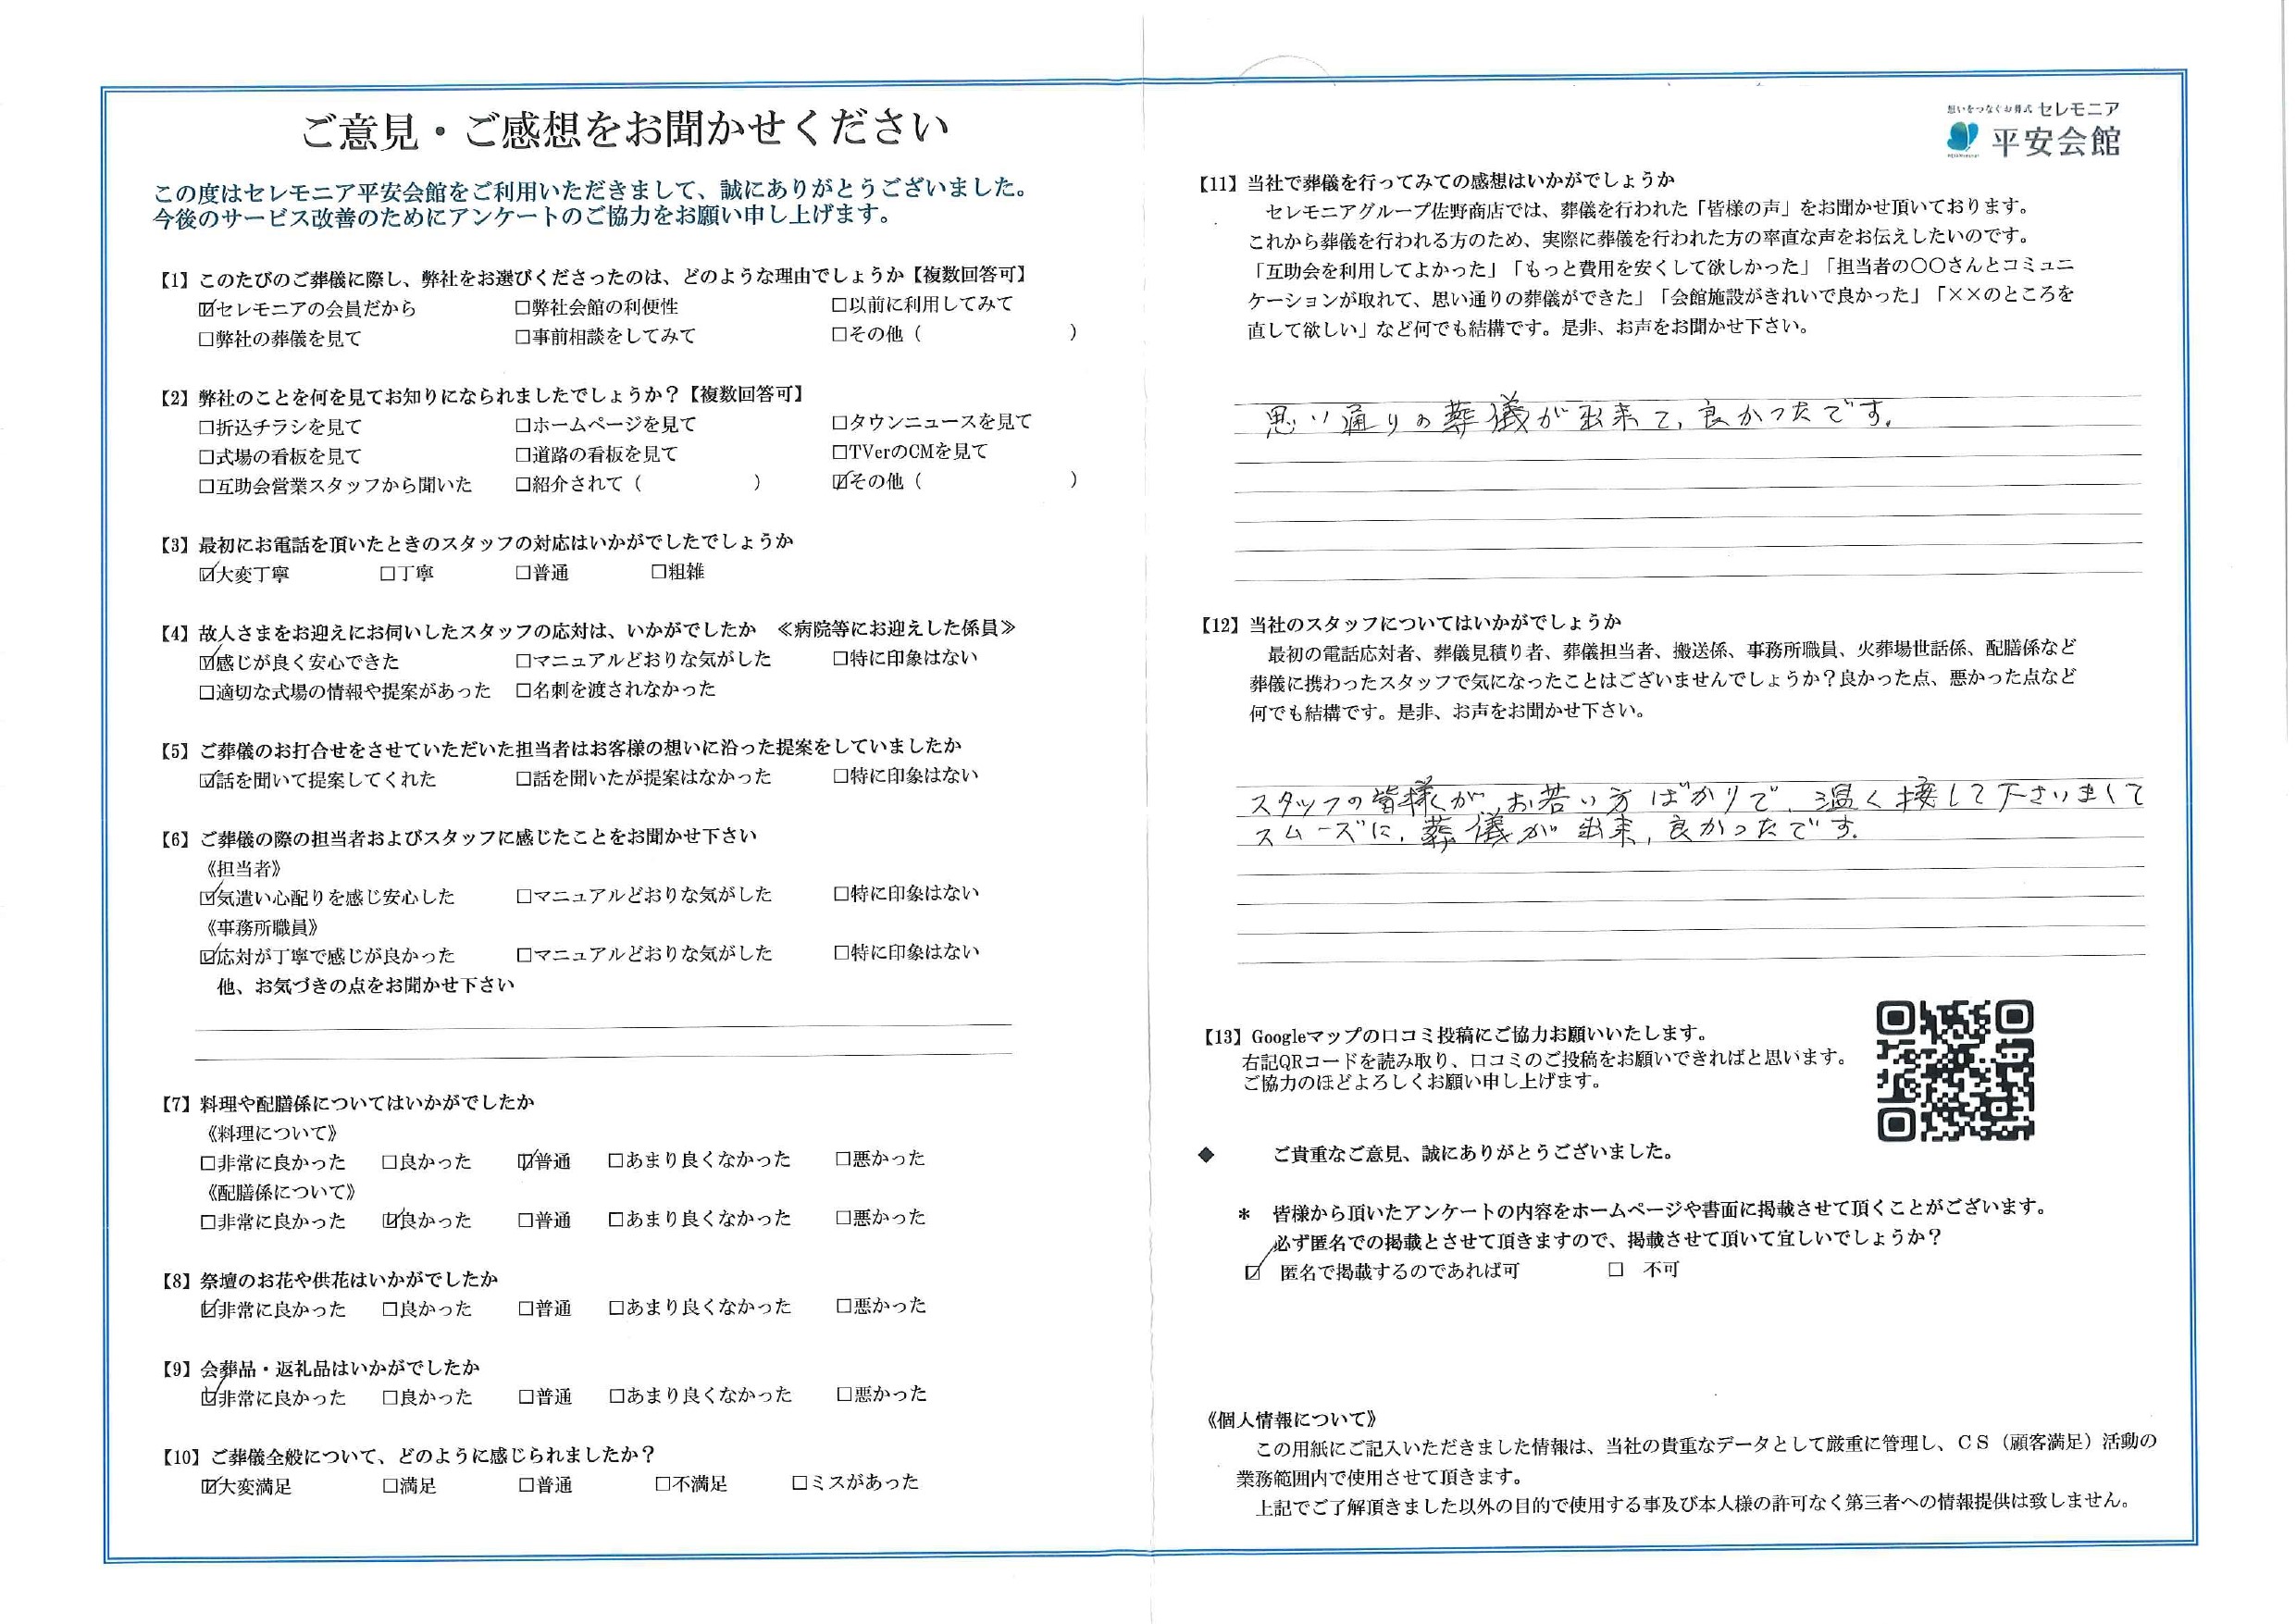 ご意見・ご感想をお聞かせください
この度はセレモニア平安会館をご利用いただきまして、誠にありがとうございました。
今後のサービス改善のためにアンケートのご協力をお願い申し上げます。
【1】このたびのご葬儀に際し、弊社をお選びくださったのは、どのような理由でしょうか【複数回答可】
☑セレモニアの会員だから □弊社会館の利便性 □以前に利用してみて
□弊社の葬儀を見て □事前相談をしてみて □その他（ ）
【2】弊社のことを何を見てお知りになられましたでしょうか？【複数回答可】
□折込チラシを見て □ホームページを見て □タウンニュースを見て
□式場の看板を見て □道路の看板を見て □TVerのCMを見て
□互助会営業スタッフから聞いた □紹介されて（ ） ☑その他（ ）
【3】最初にお電話を頂いたときのスタッフの対応はいかがでしたでしょうか
☑大変丁寧 □丁寧 □普通 □粗雑
【4】故人さまをお迎えにお伺いしたスタッフの応対は、いかがでしたか ≪病院等にお迎えした係員≫
☑感じが良く安心できた □マニュアルどおりな気がした □特に印象はない
□適切な式場の情報や提案があった □名刺を渡されなかった
【5】ご葬儀のお打合せをさせていただいた担当者はお客様の想いに沿った提案をしていましたか
☑話を聞いて提案してくれた □話を聞いたが提案はなかった □特に印象はない
【6】ご葬儀の際の担当者およびスタッフに感じたことをお聞かせ下さい
《担当者》
☑気遣い心配りを感じ安心した □マニュアルどおりな気がした □特に印象はない
《事務所職員》
☑応対が丁寧で感じが良かった □マニュアルどおりな気がした □特に印象はない
他、お気づきの点をお聞かせ下さい
【7】料理や配膳係についてはいかがでしたか
《料理について》
□非常に良かった □良かった ☑普通 □あまり良くなかった □悪かった
《配膳係について》
□非常に良かった ☑良かった □普通 □あまり良くなかった □悪かった
【8】祭壇のお花や供花はいかがでしたか
☑非常に良かった □良かった □普通 □あまり良くなかった □悪かった
【9】会葬品・返礼品はいかがでしたか
☑非常に良かった □良かった □普通 □あまり良くなかった □悪かった
【10】ご葬儀全般について、どのように感じられましたか？
☑大変満足 □満足 □普通 □不満足 □ミスがあった
想いをつなぐお葬式 セレモニア
平安会館
【11】当社で葬儀を行ってみての感想はいかがでしょうか
セレモニアグループ佐野商店では、葬儀を行われた「皆様の声」をお聞かせ頂いております。
これから葬儀を行われる方のため、実際に葬儀を行われた方の率直な声をお伝えしたいのです。
「互助会を利用してよかった」「もっと費用を安くして欲しかった」「担当者の〇〇さんとコミュニ
ケーションが取れて、思い通りの葬儀ができた」「会館施設がきれいで良かった」「××のところを
直して欲しい」など何でも結構です。是非、お声をお聞かせ下さい。
思い通りの葬儀が出来て、良かったです。
【12】当社のスタッフについてはいかがでしょうか
最初の電話応対者、葬儀見積り者、葬儀担当者、搬送係、事務所職員、火葬場世話係、配膳係など
葬儀に携わったスタッフで気になったことはございませんでしょうか？良かった点、悪かった点など
何でも結構です。是非、お声をお聞かせ下さい。
スタッフの皆様が、お若い方ばかりで、温く接して下さいまして
スムーズに、葬儀が出来、良かったです。
【13】Googleマップの口コミ投稿にご協力お願いいたします。
右記QRコードを読み取り、口コミのご投稿をお願いできればと思います。
ご協力のほどよろしくお願い申し上げます。
◆ ご貴重なご意見、誠にありがとうございました。
＊ 皆様から頂いたアンケートの内容をホームページや書面に掲載させて頂くことがございます。
必ず匿名での掲載とさせて頂きますので、掲載させて頂いて宜しいでしょうか？
☑ 匿名で掲載するのであれば可 □ 不可
《個人情報について》
この用紙にご記入いただきました情報は、当社の貴重なデータとして厳重に管理し、ＣＳ（顧客満足）活動の
業務範囲内で使用させて頂きます。
上記でご了解頂きました以外の目的で使用する事及び本人様の許可なく第三者への情報提供は致しません。